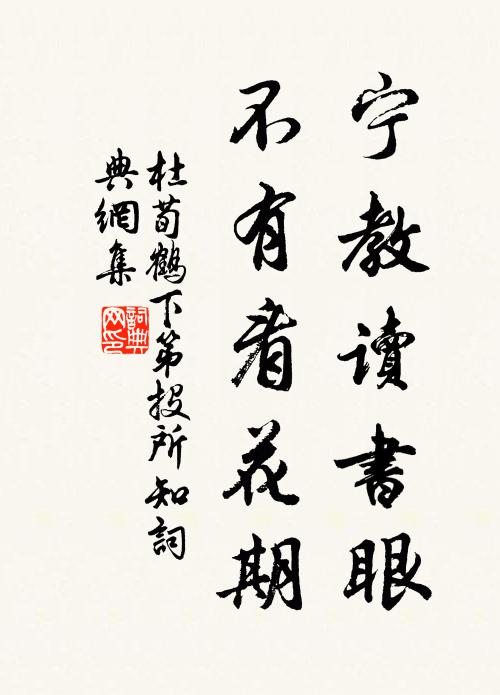 宁教讀書眼
不有看花期
杜荀鶴下第投所知詞
典網集
詞典網印